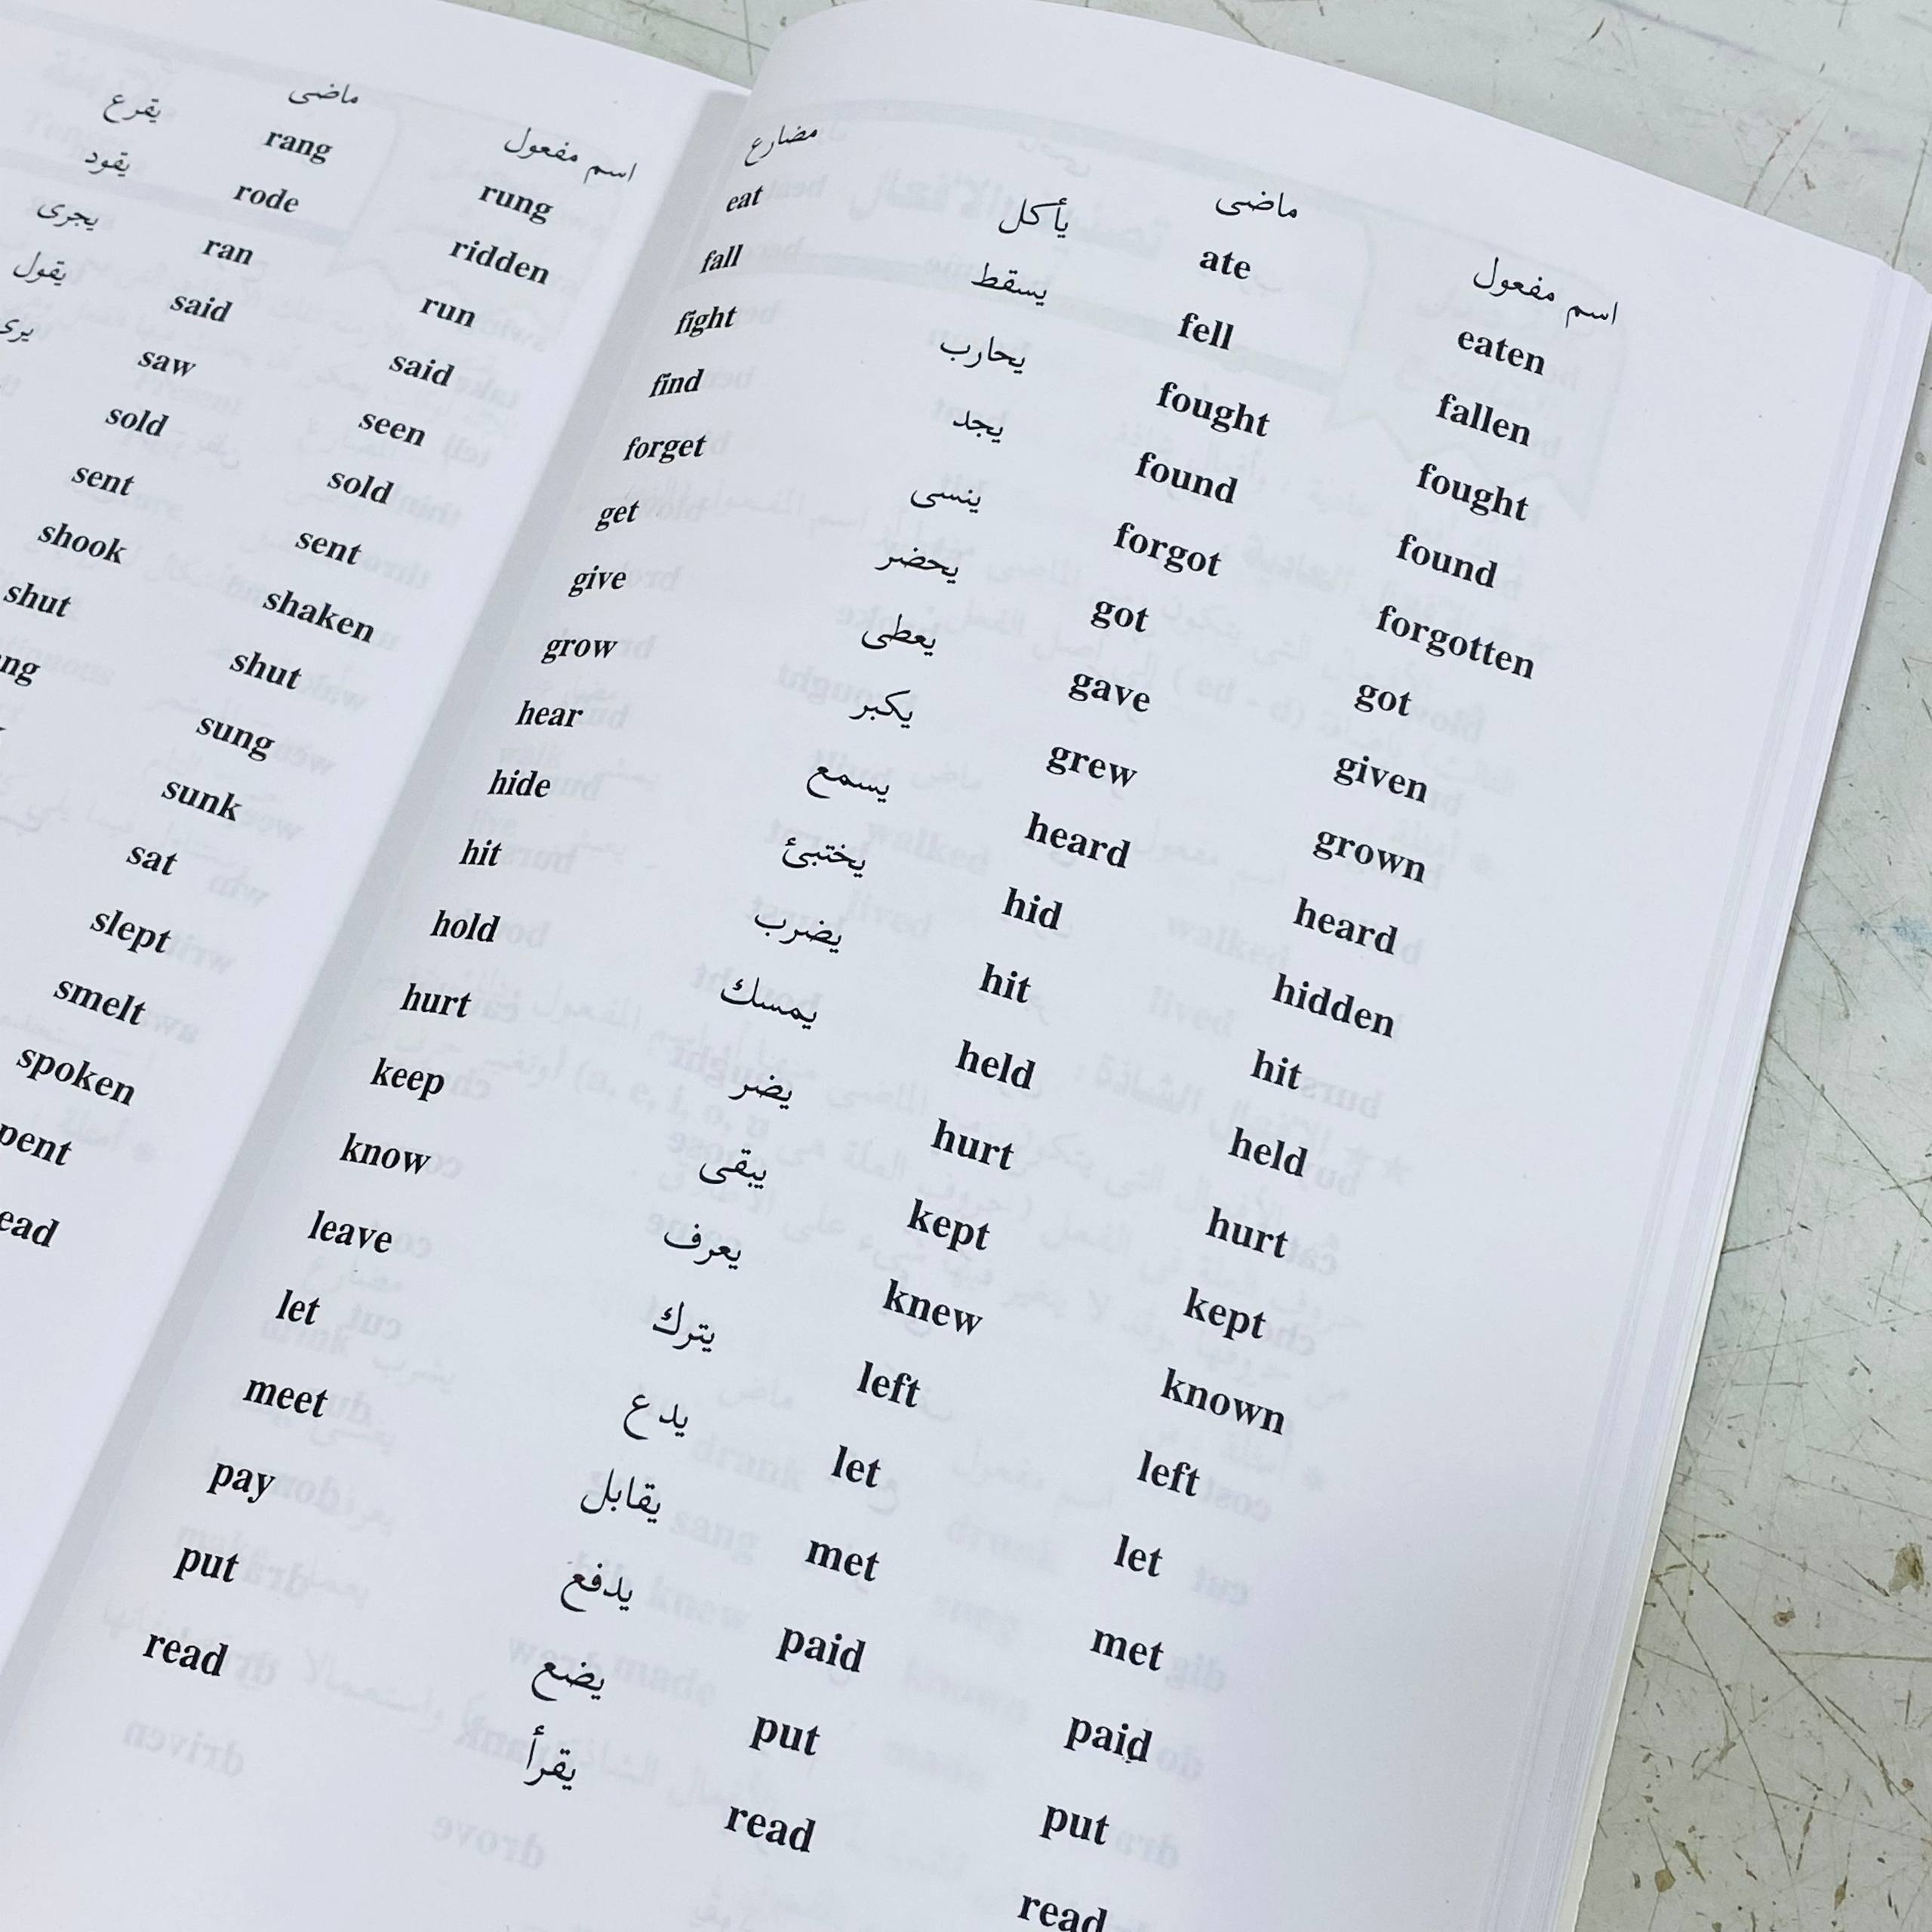 ماضى اسم مفعول
يقرع rang rung
يقود rode ridden
يجرى ran run
يقول said said
يرى saw seen
sold sold
sent sent
shook shaken
shut shut
sung
sunk
sat
slept
smelt
spoken
مضارع ماضى اسم مفعول
eat يأكل ate eaten
fall يسقط fell fallen
fight يحارب fought fought
find يجد found found
forget ينسى forgot forgotten
get يحضر got got
give يعطى gave given
grow يكبر grew grown
hear يسمع heard heard
hide يختبئ hid hidden
hit يضرب hit hit
hold يمسك held held
hurt يضر hurt hurt
keep يبقى kept kept
know يعرف knew known
leave يترك left left
let يدع let let
meet يقابل met met
pay يدفع paid paid
put يضع put put
read يقرأ read read